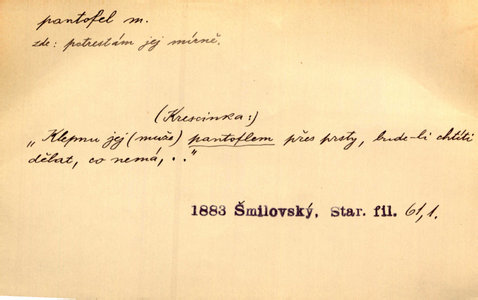 pantofel m.
zde: potrestám jej mírně.
(Krescinka:)
„Klepnu jej (muže) pantoflem přes prsty, bude-li chtíti
dělat, co nemá, . ."
1883 Šmilovský, Star. fil. 61,1.